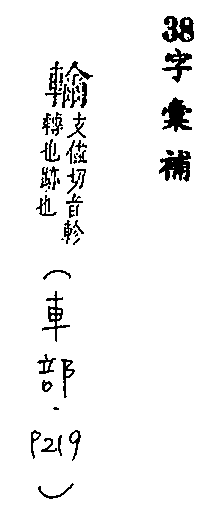 38字彙補
支俊切音軫
轉也跡也
（車部．P219）